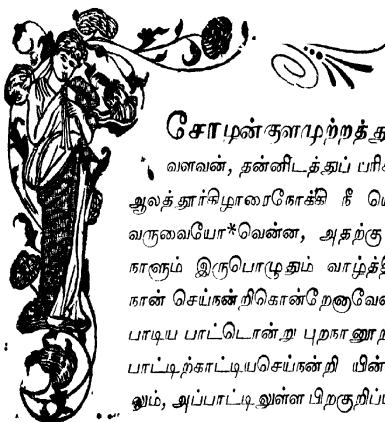 சோழன்குளமுற்றத்து
வளவன், தன்னிடத்துப் பரிச
ஆலத்தூர்கிழாரைநோக்கி நீ
வருவையோ*வென்ன, அதற்கு
நாளும் இருபொழுதும் வாழ்த்தி
நான் செய்நன்றிகொன்றேனாவேன
பாடிய பாட்டொன்று புறநானூற
பாட்டிற்காட்டியசெய்நன்றி யின்
லும், அப்பாட்டிலுள்ள பிறகுறிப்ப